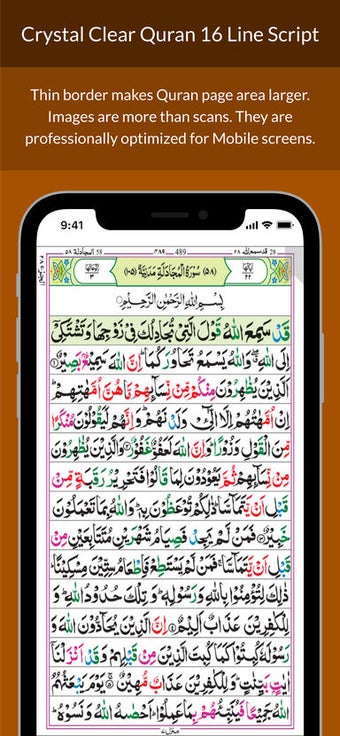 Crystal Clear Quran 16 Line Script
Thin border makes Quran page area larger.
Images are more than scans. They are
professionally optimized for Mobile screens.
9:41
28 قد سمع الله ٢٨
489 ٤٨٩
58 المجادلة ٥٨
اٰيَاتُهَا ٢٢
(٥٨) سُوْرَةُ الْمُجَادَلَةِ مَدَنِيَّةٌ (١٠٥)
رُكُوْعَاتُهَا ٣
بِسْمِ اللّٰهِ الرَّحْمٰنِ الرَّحِيْمِ
قَدْ سَمِعَ اللّٰهُ قَوْلَ الَّتِيْ تُجَادِلُكَ فِيْ زَوْجِهَا وَتَشْتَكِيْٓ
اِلَى اللّٰهِ ۖ وَاللّٰهُ يَسْمَعُ تَحَاوُرَكُمَا ؕ اِنَّ اللّٰهَ سَمِيْعٌۢ بَصِيْرٌ ۝١
اَلَّذِيْنَ يُظٰهِرُوْنَ مِنْكُمْ مِّنْ نِّسَآئِهِمْ مَّا هُنَّ اُمَّهٰتِهِمْ ؕ
اِنْ اُمَّهٰتُهُمْ اِلَّا الّٰٓـِٔيْ وَلَدْنَهُمْ ؕ وَاِنَّهُمْ لَيَقُوْلُوْنَ مُنْكَرًا
مِّنَ الْقَوْلِ وَزُوْرًا ؕ وَاِنَّ اللّٰهَ لَعَفُوٌّ غَفُوْرٌ ۝٢ وَالَّذِيْنَ يُظٰهِرُوْنَ
مِنْ نِّسَآئِهِمْ ثُمَّ يَعُوْدُوْنَ لِمَا قَالُوْا فَتَحْرِيْرُ رَقَبَةٍ مِّنْ
قَبْلِ اَنْ يَّتَمَآسَّا ؕ ذٰلِكُمْ تُوْعَظُوْنَ بِهٖ ؕ وَاللّٰهُ بِمَا تَعْمَلُوْنَ
خَبِيْرٌ ۝٣ فَمَنْ لَّمْ يَجِدْ فَصِيَامُ شَهْرَيْنِ مُتَتَابِعَيْنِ مِنْ
قَبْلِ اَنْ يَّتَمَآسَّا ۚ فَمَنْ لَّمْ يَسْتَطِعْ فَاِطْعَامُ سِتِّيْنَ مِسْكِيْنًا ؕ
ذٰلِكَ لِتُؤْمِنُوْا بِاللّٰهِ وَرَسُوْلِهٖ ؕ وَتِلْكَ حُدُوْدُ اللّٰهِ ؕ وَ
لِلْكٰفِرِيْنَ عَذَابٌ اَلِيْمٌ ۝٤ اِنَّ الَّذِيْنَ يُحَآدُّوْنَ اللّٰهَ وَ
رَسُوْلَهٗ كُبِتُوْا كَمَا كُبِتَ الَّذِيْنَ مِنْ قَبْلِهِمْ وَقَدْ اَنْزَلْنَآ
اٰيٰتٍۢ بَيِّنٰتٍ ؕ وَلِلْكٰفِرِيْنَ عَذَابٌ مُّهِيْنٌ ۝٥ يَوْمَ يَبْعَثُهُمُ
اللّٰهُ جَمِيْعًا فَيُنَبِّئُهُمْ بِمَا عَمِلُوْا ؕ اَحْصٰىهُ اللّٰهُ وَنَسُوْهُ ؕ وَ
منزل ٧